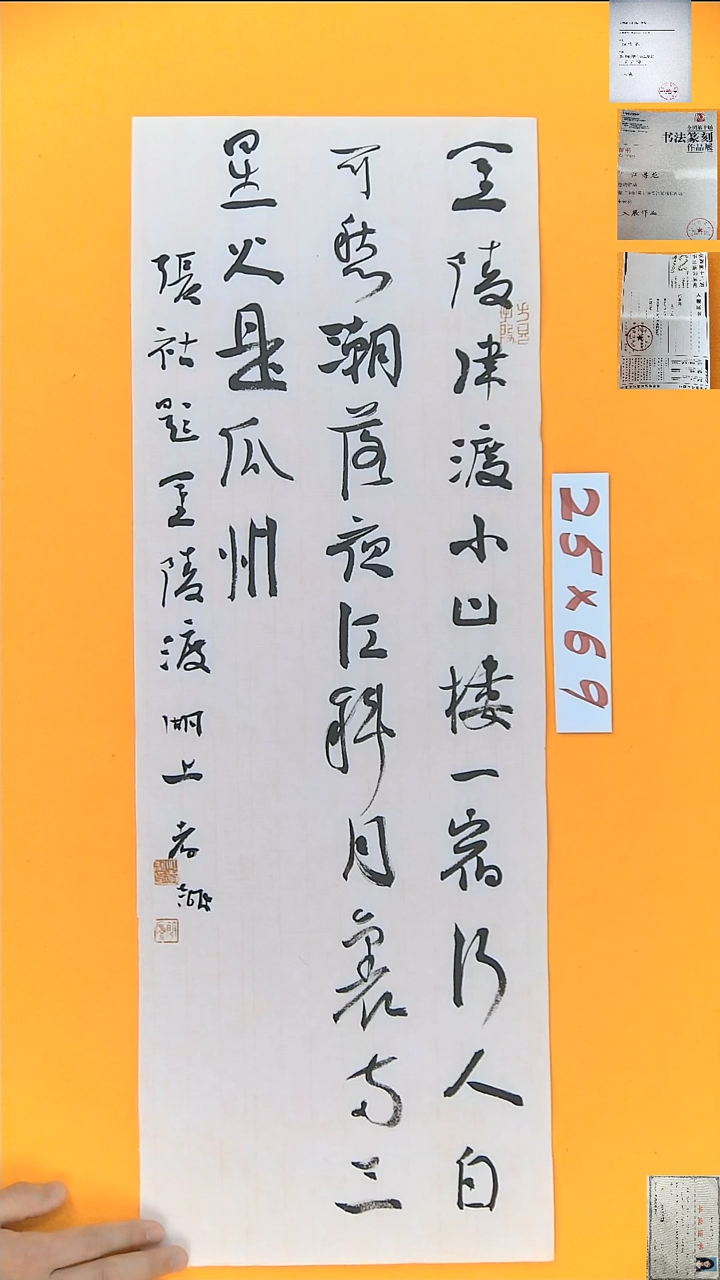 金陵津渡小山楼一宿行人自
可愁潮落夜江斜月裏两三
星火是瓜州
張祜題金陵渡湖上
25×69
书法篆刻
作品展
入展作品